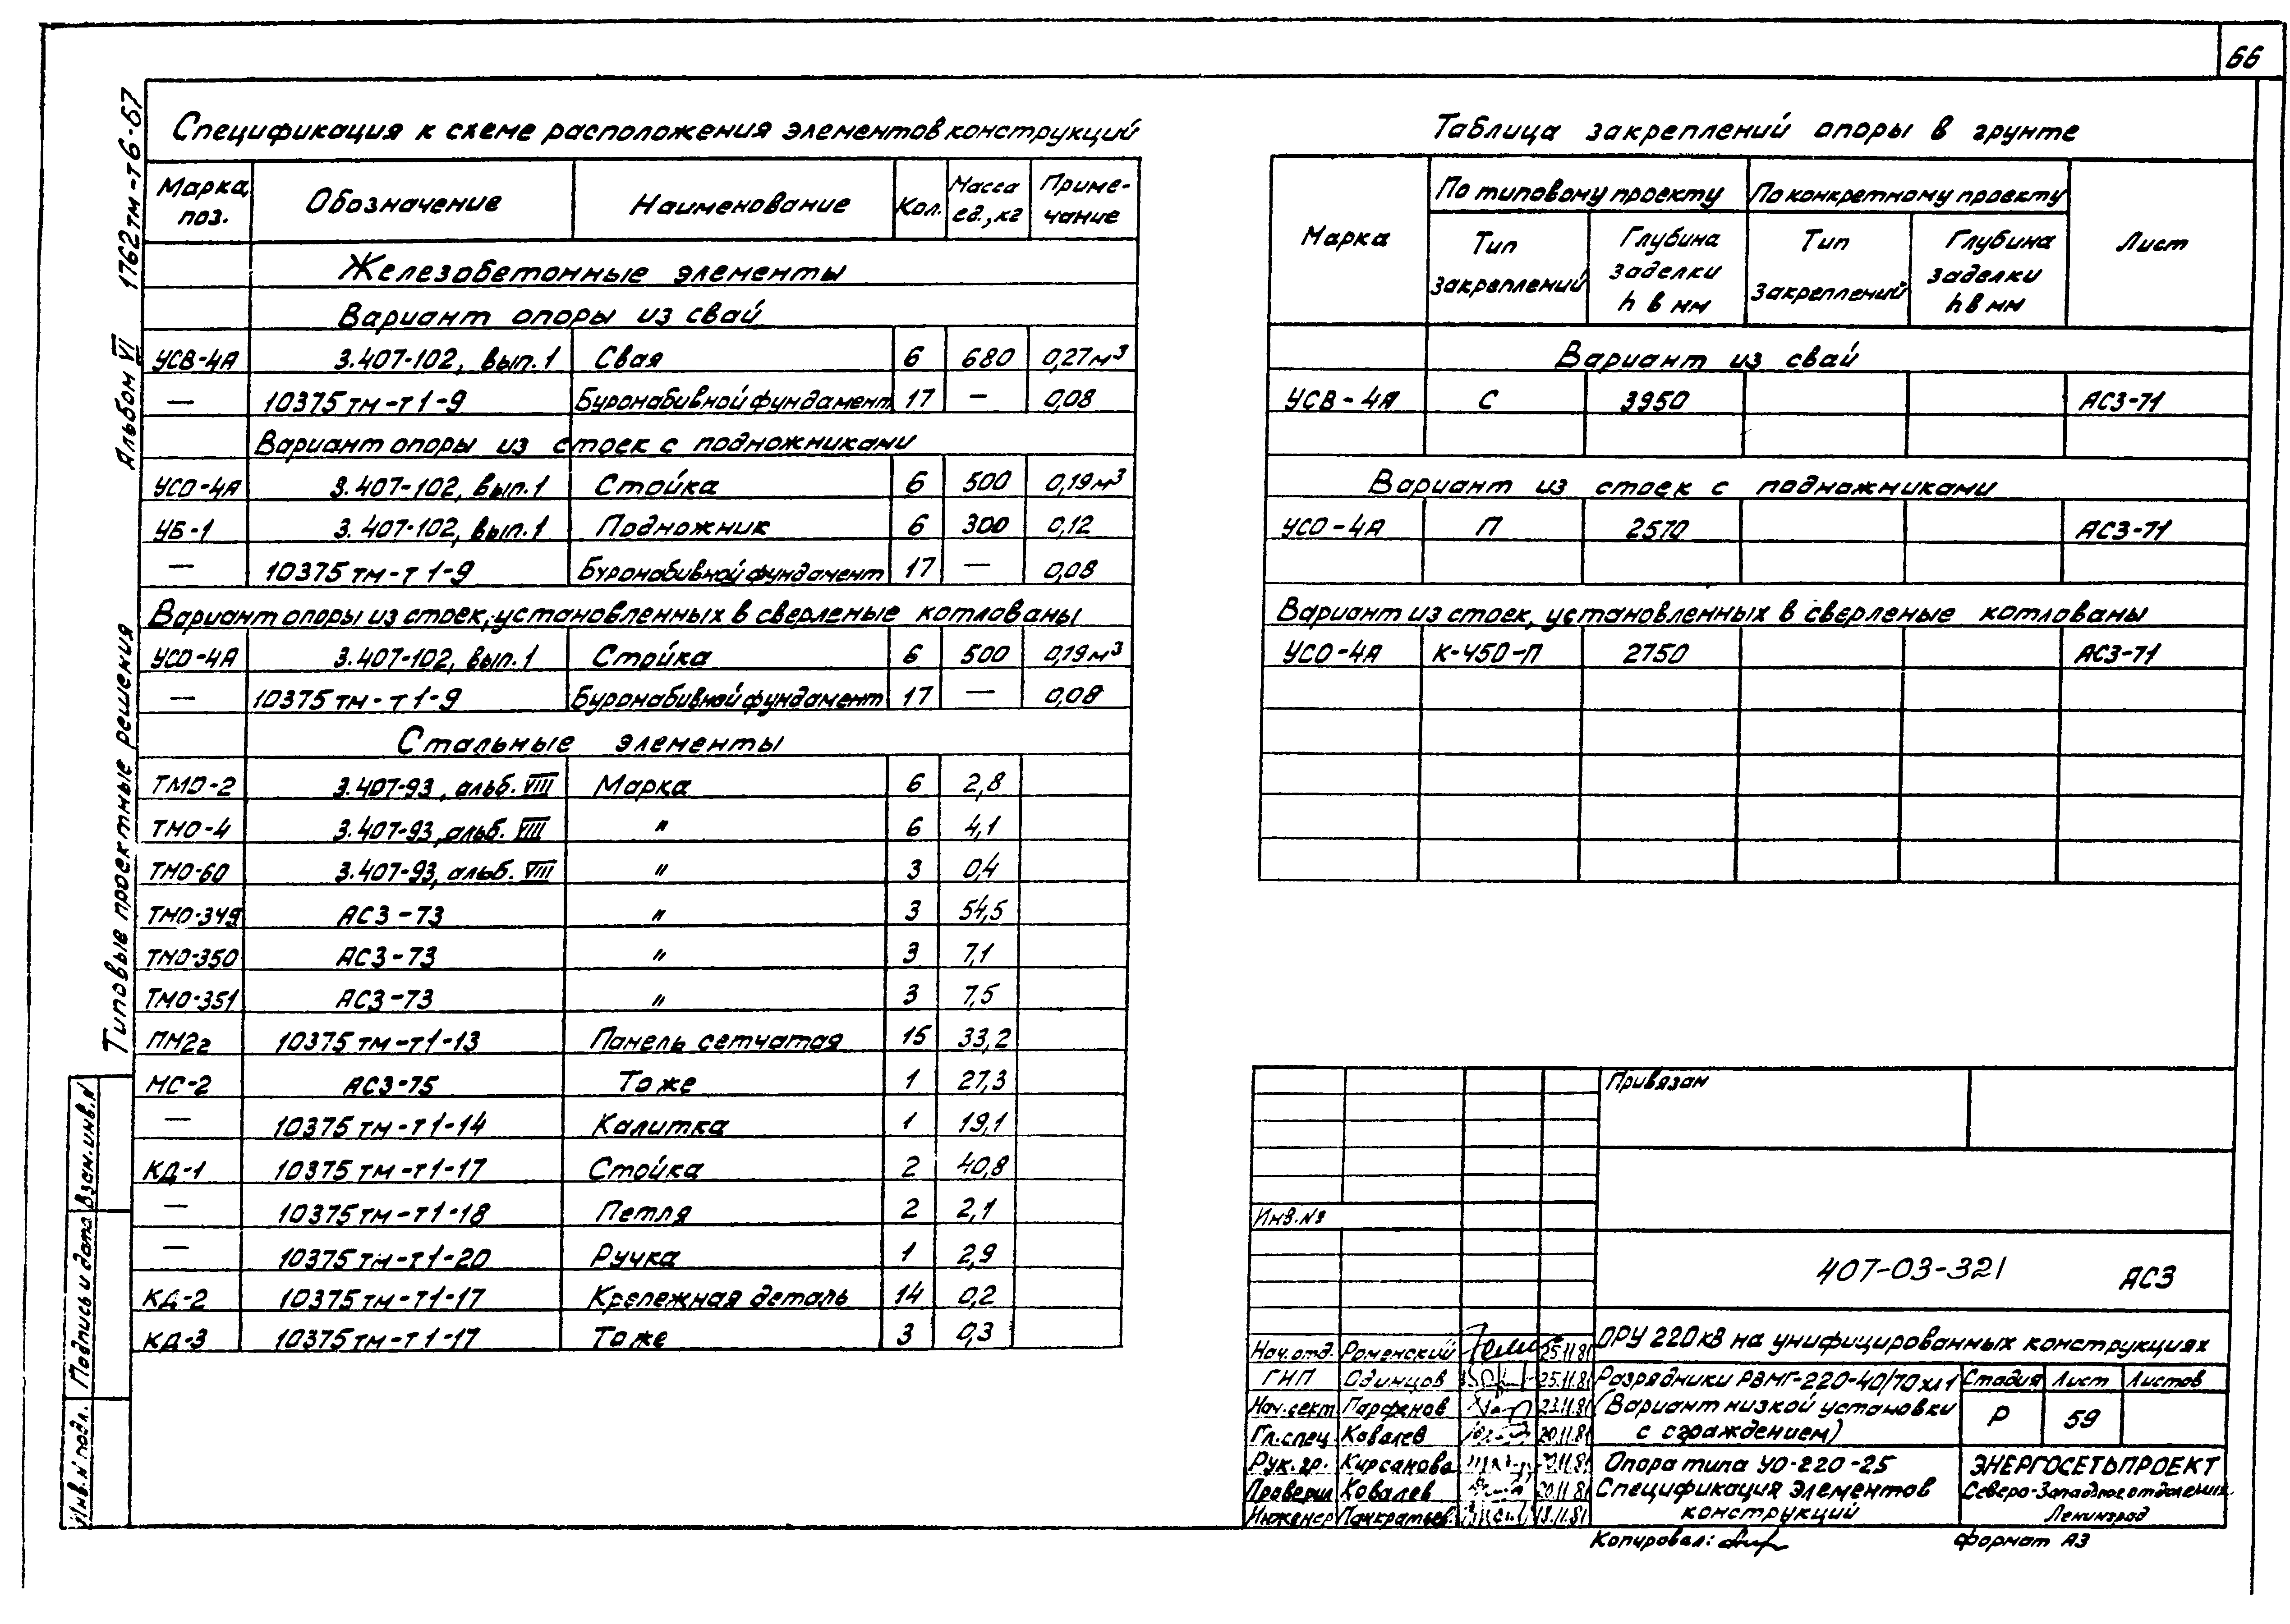 66
1762тм-т6-67
Альбом VI
Типовые проектные решения
Взам. инв. N
Подпись и дата
Инв. N подл.
Спецификация к схеме расположения элементов конструкций
Марка, поз. Обозначение Наименование Кол. Масса ед., кг Приме-чание
Железобетонные элементы
Вариант опоры из свай
УСВ-4А 3.407-102, вып. 1 Свая 6 680 0,27 м³
— 10375 тм-т1-9 Буронабивной фундамент 17 — 0,08
Вариант опоры из стоек с подножниками
УСО-4А 3.407-102, вып. 1 Стойка 6 500 0,19 м³
УБ-1 3.407-102, вып. 1 Подножник 6 300 0,12
— 10375 тм-т1-9 Буронабивной фундамент 17 — 0,08
Вариант опоры из стоек, установленных в сверленые котлованы
УСО-4А 3.407-102, вып. 1 Стойка 6 500 0,19 м³
— 10375 тм-т1-9 Буронабивной фундамент 17 — 0,08
Стальные элементы
ТМО-2 3.407-93, альб. VIII Марка 6 2,8
ТМО-4 3.407-93, альб. VIII " 6 4,1
ТМО-60 3.407-93, альб. VIII " 3 0,4
ТМО-349 АС3-73 " 3 54,5
ТМО-350 АС3-73 " 3 7,1
ТМО-351 АС3-73 " 3 7,5
ПМ2г 10375 тм-т1-13 Панель сетчатая 15 33,2
МС-2 АС3-75 То же 1 27,3
— 10375 тм-т1-14 Калитка 1 19,1
КД-1 10375 тм-т1-17 Стойка 2 40,8
— 10375 тм-т1-18 Петля 2 2,1
— 10375 тм-т1-20 Ручка 1 2,9
КД-2 10375 тм-т1-17 Крепежная деталь 14 0,2
КД-3 10375 тм-т1-17 То же 3 0,3
Таблица закреплений опоры в грунте
Марка По типовому проекту По конкретному проекту Лист
Тип закреплений Глубина заделки h в мм Тип закреплений Глубина заделки h в мм
Вариант из свай
УСВ-4А С 3950 АС3-71
Вариант из стоек с подножниками
УСО-4А П 2570 АС3-71
Вариант из стоек, установленных в сверленые котлованы
УСО-4А К-450-П 2750 АС3-71
Привязан
Инв. №
407-03-321 АС3
ОРУ 220 кВ на унифицированных конструкциях
Нач. отд. Роменский 25.11.81
ГИП Одинцов 25.11.81
Нач. сект Парфенов 23.11.81
Гл. спец. Ковалев 20.11.81
Рук. гр. Кирсанова 20.11.81
Проверил Ковалев 20.11.81
Инженер Панкратьев 13.11.81
Разрядники РВМГ-220-40/70 хл1
(Вариант низкой установки
с ограждением)
Стадия Лист Листов
Р 59
Опора типа УО-220-25
Спецификация элементов
конструкций
ЭНЕРГОСЕТЬПРОЕКТ
Северо-Западное отделение
Ленинград
Копировал:
формат А3